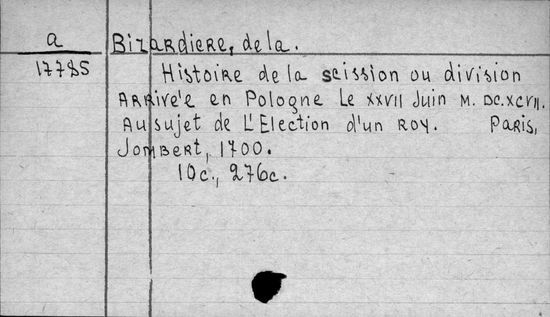 a
17785
Bizardiere, de la.
Histoire de la scission ou division
arrivée en Pologne le XXVII Juin M. DC.XCVII.
au sujet de l'Election d'un Roy. Paris,
Jombert, 1700.
10c., 276c.